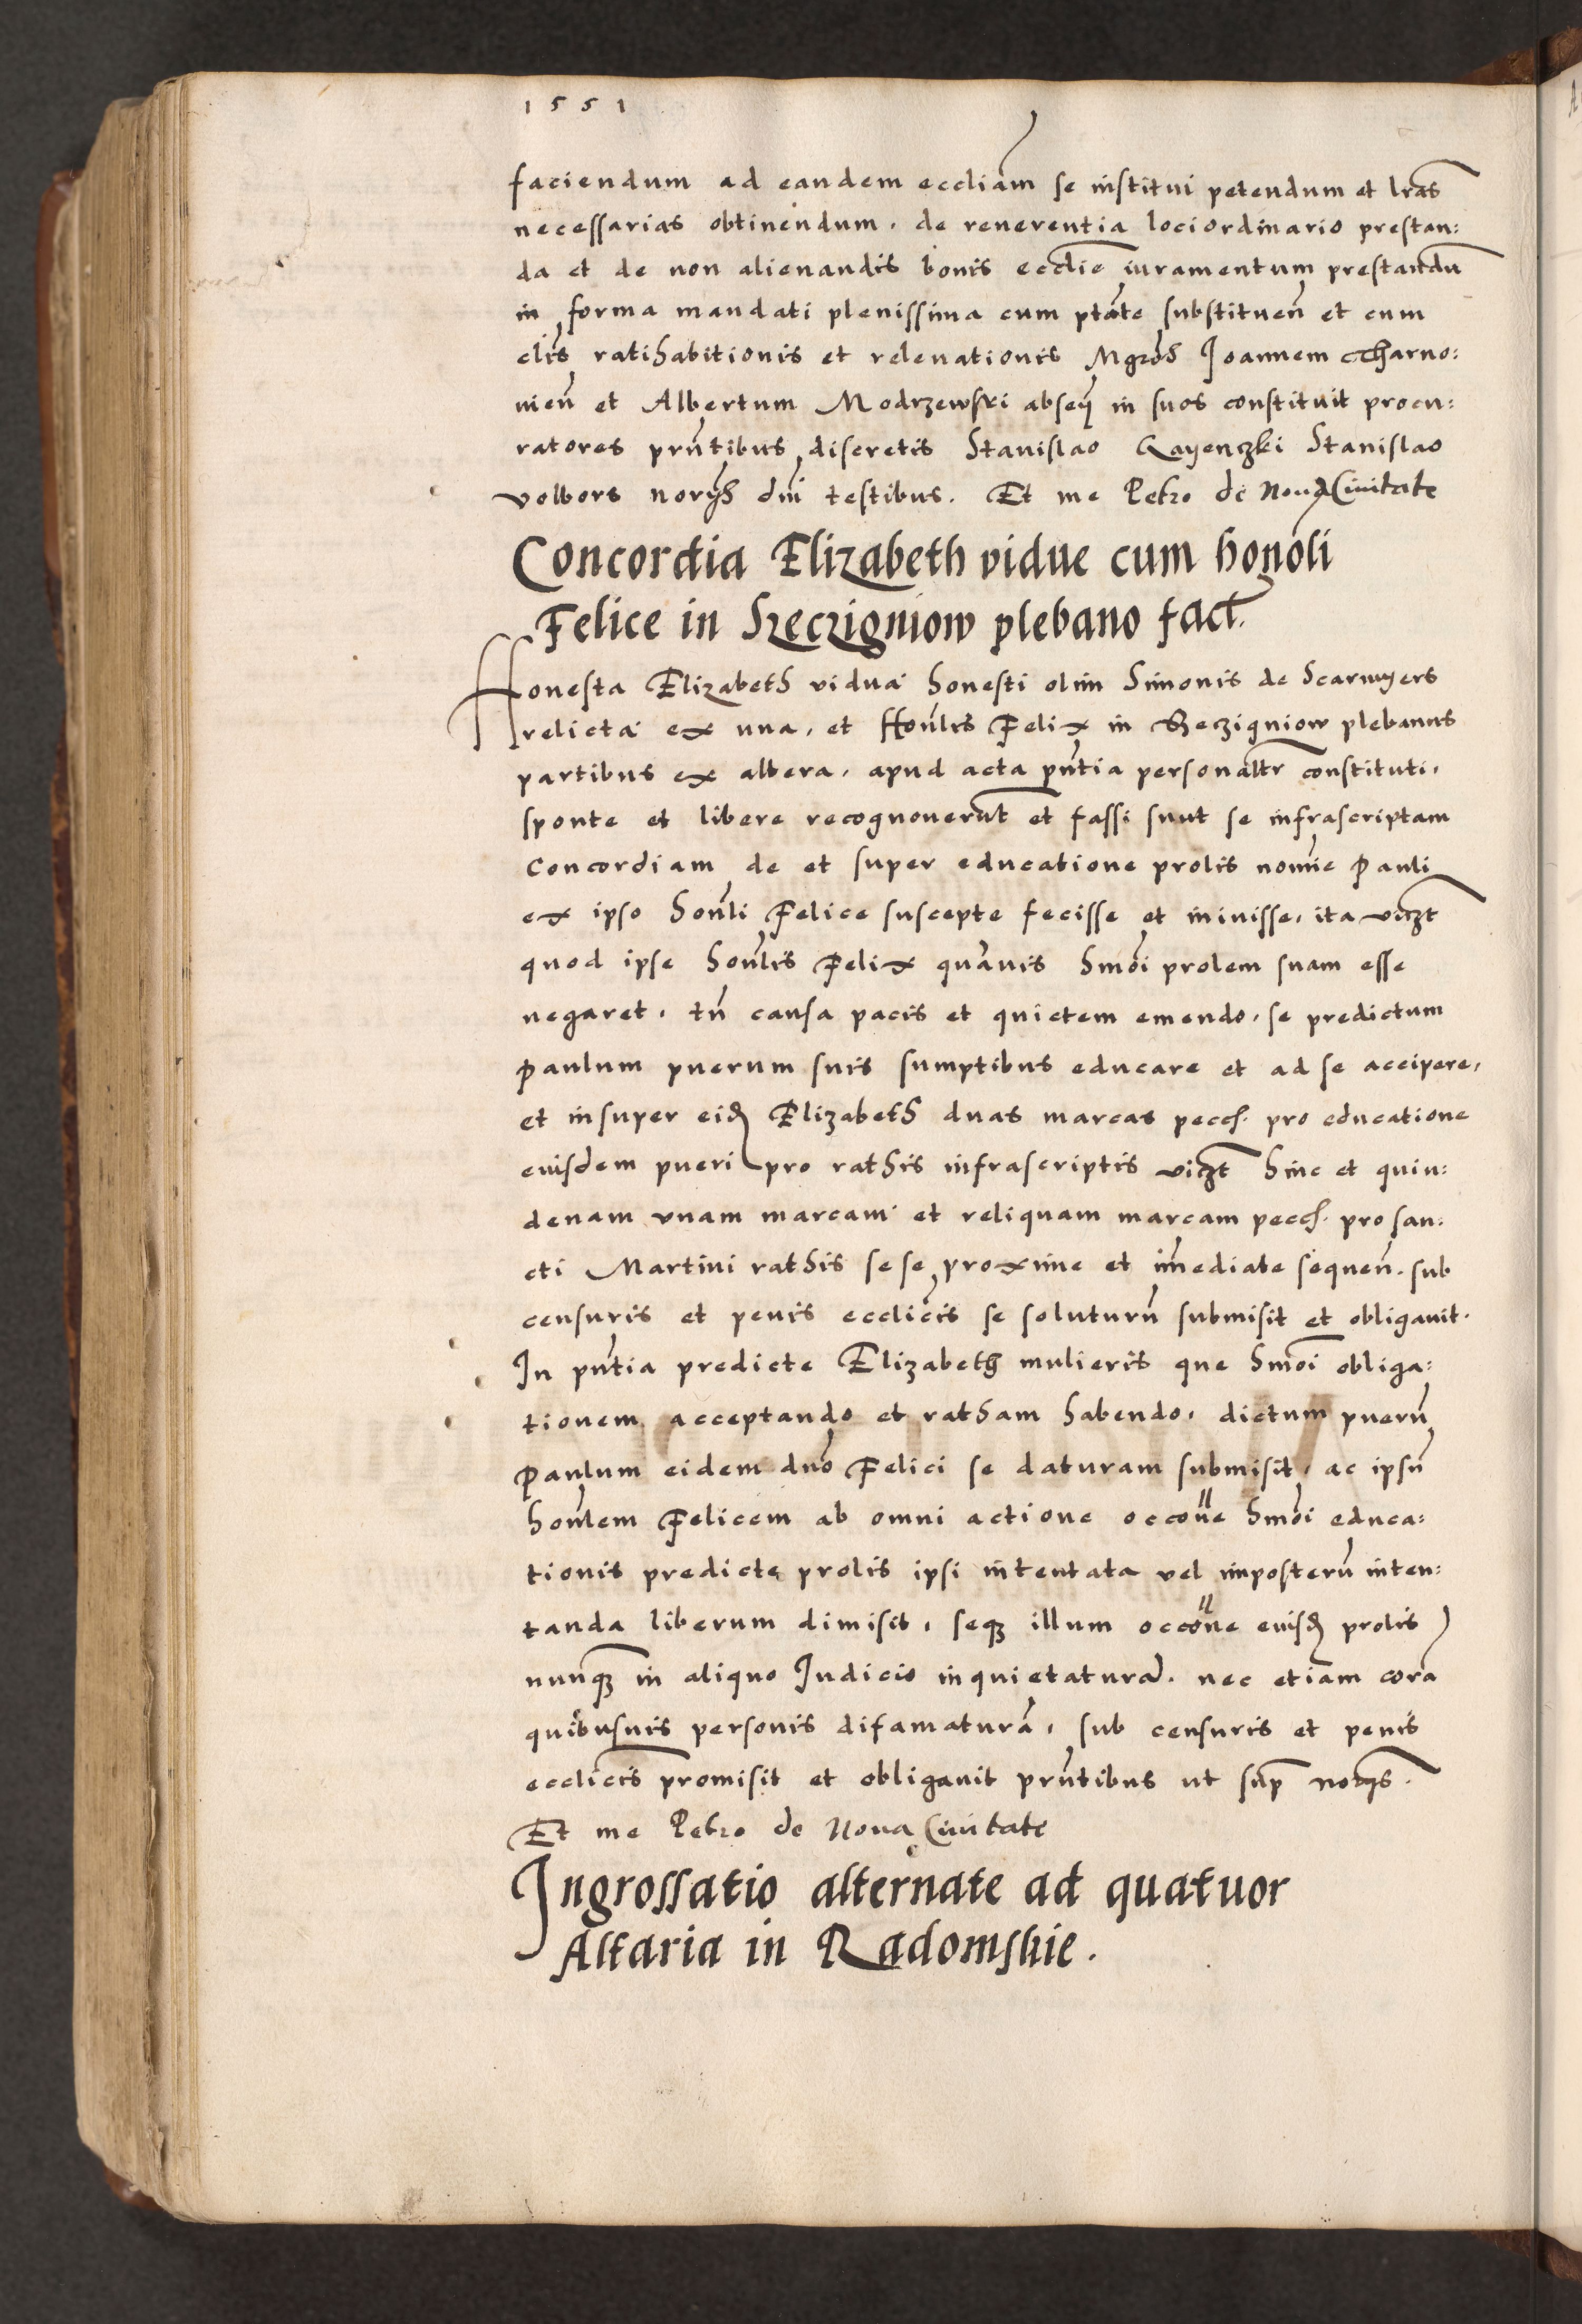 1551
faciendum ad eandem eccliam se institui petendum et lras
necessarias obtinendum. de reverentia loci ordinario prestan:
da et de non alienandis bonis ecclie iuramentum prestandu
in forma mandati plenissima cum ptate substituen et cum
clis ratihabitionis et relevationis Mgros Joannem Tharno:
vien et Albertum Modrzewski absen in suos constituit procu:
ratores prntibus discretis Stanislao Stanislao
volbors norijs dni testibus. Et me Petro de Nova Civitate
Concordia Elizabeth vidue cum honoli
Felice in Szeczigniow plebano fact.
Honesta Elizabeth vidua honesti olim Simonis de
relicta ex una, et Honlis Felix in Szeczigniow plebanus
partibus ex altera, apud acta pntia personaltr constituti,
sponte et libere recognoverut et fassi sunt se infrascriptam
Concordiam de et super educatione prolis nomie Pauli
ex ipso honli Felice suscepte fecisse et inivisse, ita viczt
quod ipse honlis Felix quavis hmoi prolem suam esse
negaret, tn causa pacis et quietem emendo, se predictum
Paulum puerum suis sumptibus educare et ad se accipere,
et insuper eid Elizabeth duas marcas pecch. pro educatione
eiusdem pueri pro rathis infrascriptis viczt hinc et quin:
denam unam marcam et reliquam marcam pecch. pro san:
cti Martini rathis sese proxime et imediate sequen. sub
censuris et penis ecclicis se soluturu submisit et obligavit.
In pntia predicte Elizabeth mulieris que hmoi obliga:
tionem acceptando et ratham habendo, dictum pueru
Paulum eidem dno Felici se daturam submisit, ac ipsu
honlem Felicem ab omni actione occone hmoi educa:
tionis predicte prolis ipsi intentata vel imposteru inten:
tanda liberum dimisit, seqz illum occone eiusd prolis
nunqz in aliquo Judicio inquietatura. nec etiam cora
quibusuis personis difamatura, sub censuris et penis
ecclicis promisit et obligavit prntibus ut sup notijs.
Et me Petro de Nova Civitate
Ingrossatio alternate ad quatuor
Altaria in Radomskie.